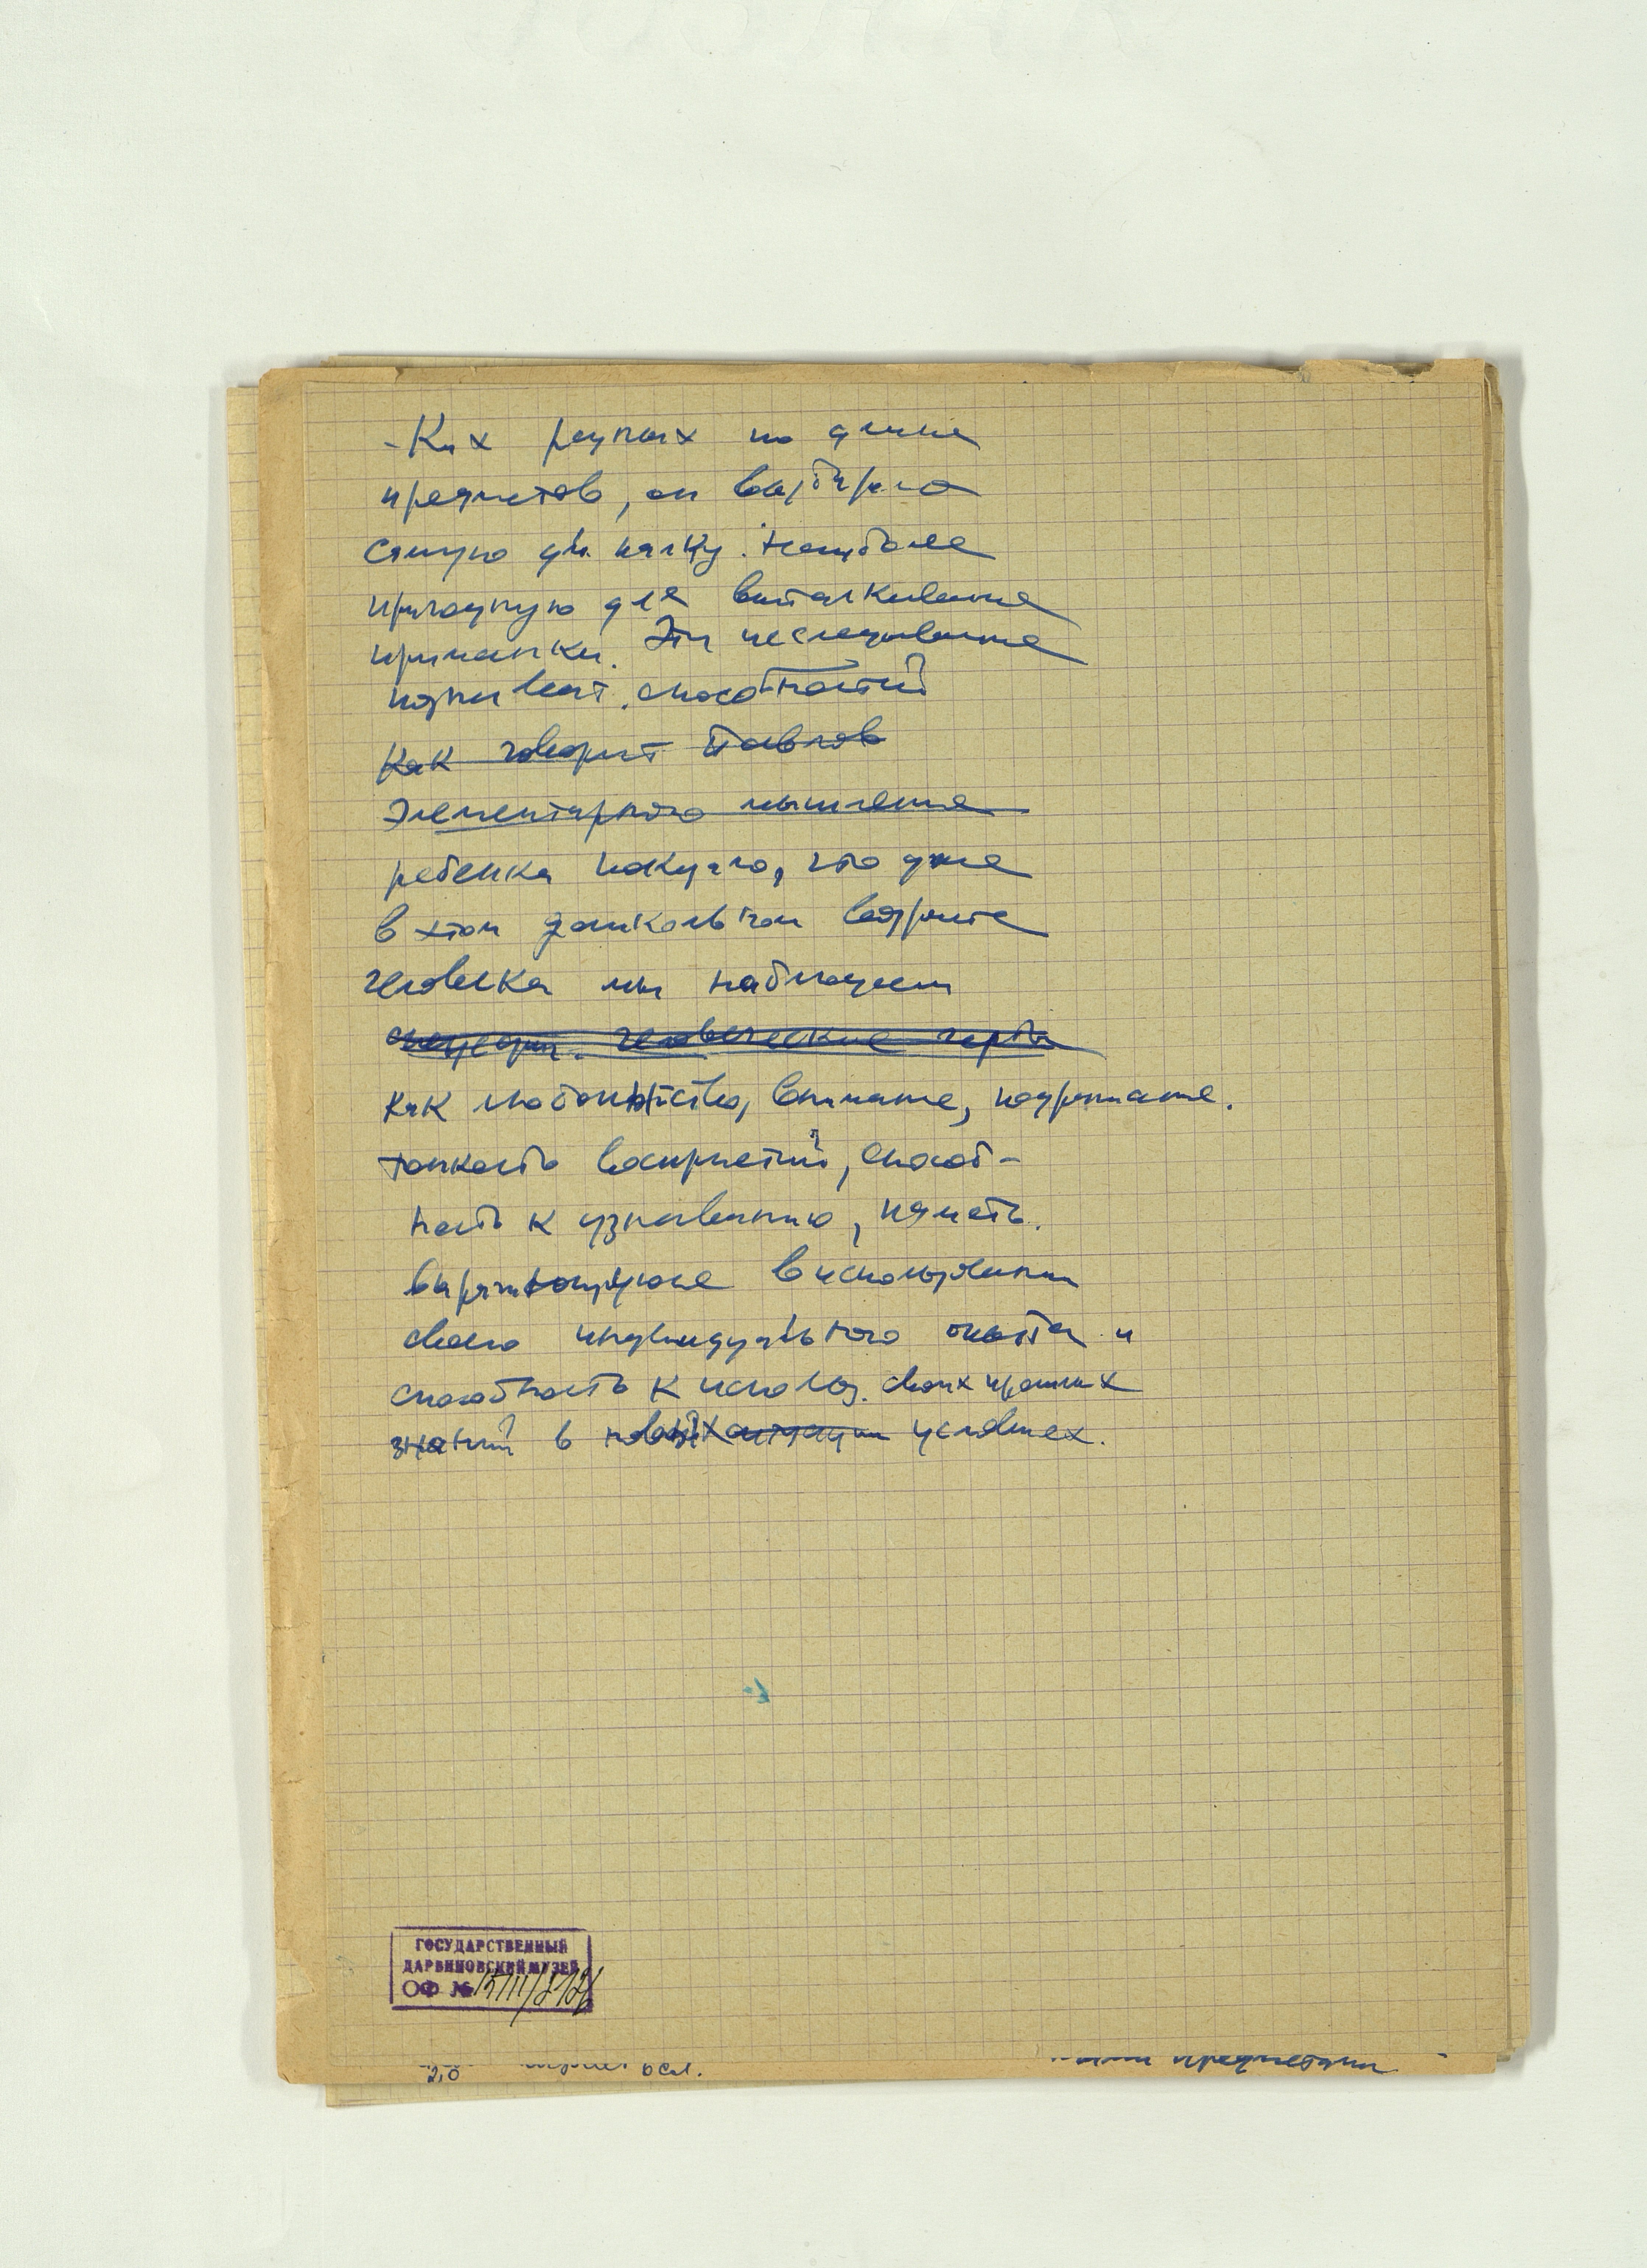 -Ких разных по длине
предметов, он выбирал
самую дл. палку. наиболее
пригодную для выталкивания
приманки. Эти исследования
познават. способностей
Как говорит Павлов
Элементарного мышления
ребенка показало, что уже
в этом дошкольном возрасте
человека мы наблюдаем
человеческие черты
как любопытство, внимание, подражание.
тонкость восприятий, способ-
ность к узнаванию, память.
в использовании
своего индивидуального опыта и
способность к использ. своих прошлых
знаний в новых ситуации условиях.
ГОСУДАРСТВЕННЫЙ
ДАРВИНОВСКИЙ МУЗЕЙ
ОФ №
предметами